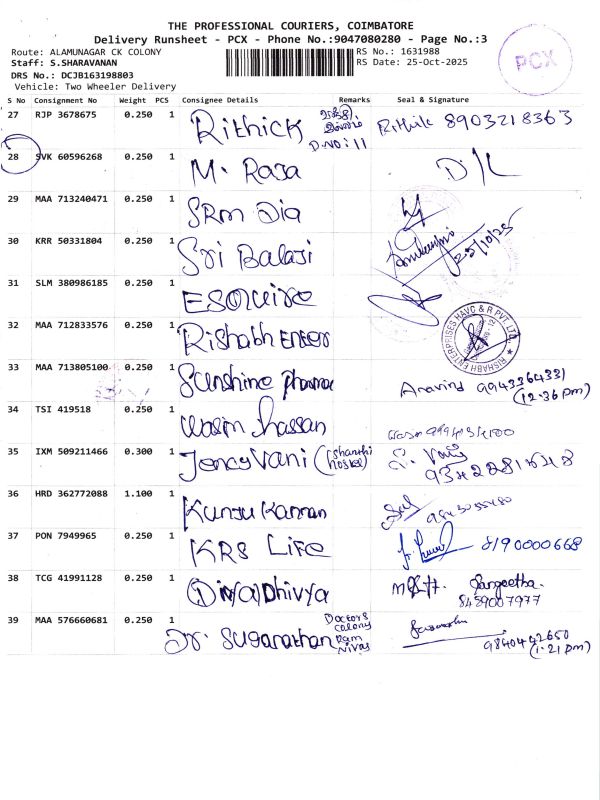 THE PROFESSIONAL COURIERS, COIMBATORE
Delivery Runsheet - PCX - Phone No.:9047080280 - Page No.:3
Route: ALAMUNAGAR CK COLONY
RS No.: 1631988
Staff: S.SHARAVANAN
RS Date: 25-Oct-2025
DRS No.: DCJB163198803
Vehicle: Two Wheeler Delivery
PCX
S No Consignment No Weight PCS Consignee Details Remarks Seal & Signature
27 RJP 3678675 0.250 1 Rithick D.NO:11 Rithik 8903218363
28 SVK 60596268 0.250 1 M. Rasa D/L
29 MAA 713240471 0.250 1 SRM Dia
30 KRR 50331804 0.250 1 Sri Balaji 25/10/25
31 SLM 380986185 0.250 1 ESQUIRE
32 MAA 712833576 0.250 1 Rishabh Enter
RISHABH ENTERPRISES HAVC & R PVT. LTD.
33 MAA 713805100 0.250 1 Sunshine Pharma Aravind 9943364331
(12:36 pm)
34 TSI 419518 0.250 1 Wasim Hassan
35 IXM 509211466 0.300 1 Jency Vani (Shanthi
hostel)
36 HRD 362772088 1.100 1 Kunju Kannan
37 PON 7949965 0.250 1 KRS Life 8190000668
38 TCG 41991128 0.250 1 Dhivya Sangeetha
8489007977
39 MAA 576660681 0.250 1 Dr. Suganathan Doctors
Colony
Ram
Nivas
9840442650
(1:21 pm)